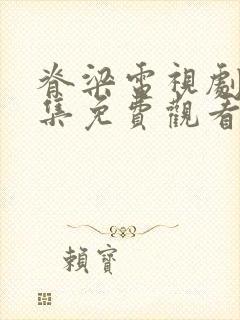 脊梁電視劇
集免費觀看
賴寶